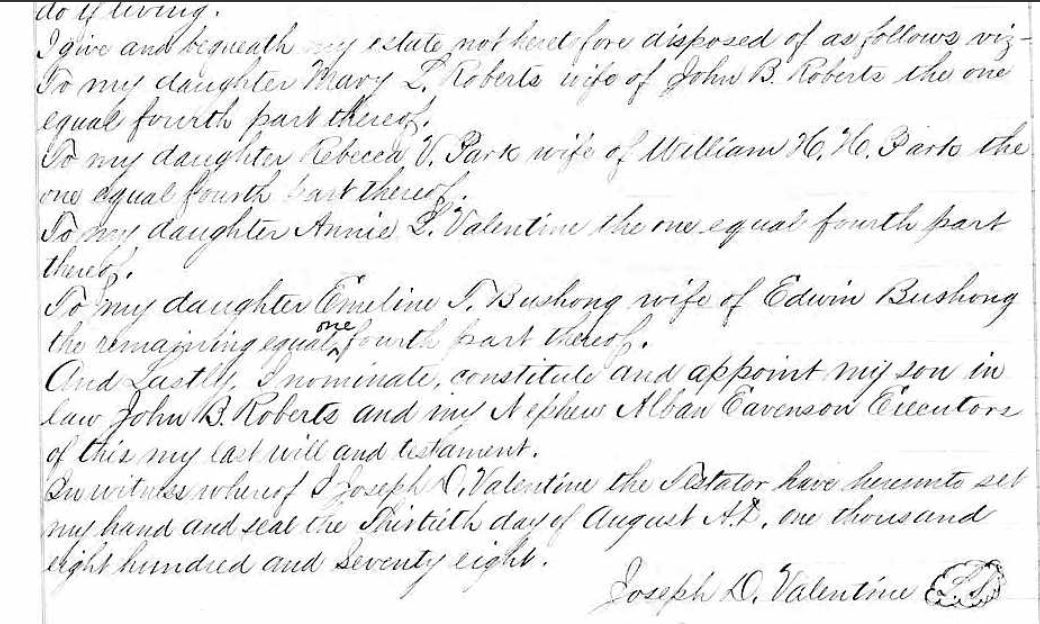 do if living.
I give and bequeath my estate not heretofore disposed of as follows viz-
To my daughter Mary L. Roberts wife of John B. Roberts the one
equal fourth part thereof.
To my daughter Rebecca V. Park wife of William H. H. Park the
one equal fourth part thereof.
To my daughter Annie L. Valentine the one equal fourth part
thereof.
To my daughter Emeline T. Bushong wife of Edwin Bushong
the remaining equal one fourth part thereof.
And Lastly, I nominate, constitute and appoint my son in
law John B. Roberts and my Nephew Alban Eavenson Executors
of this my last will and testament.
In witness whereof I Joseph D. Valentine the Testator have hereunto set
my hand and seal the Thirtieth day of August A.D. one thousand
eight hundred and Seventy eight.
Joseph D. Valentine L.S.